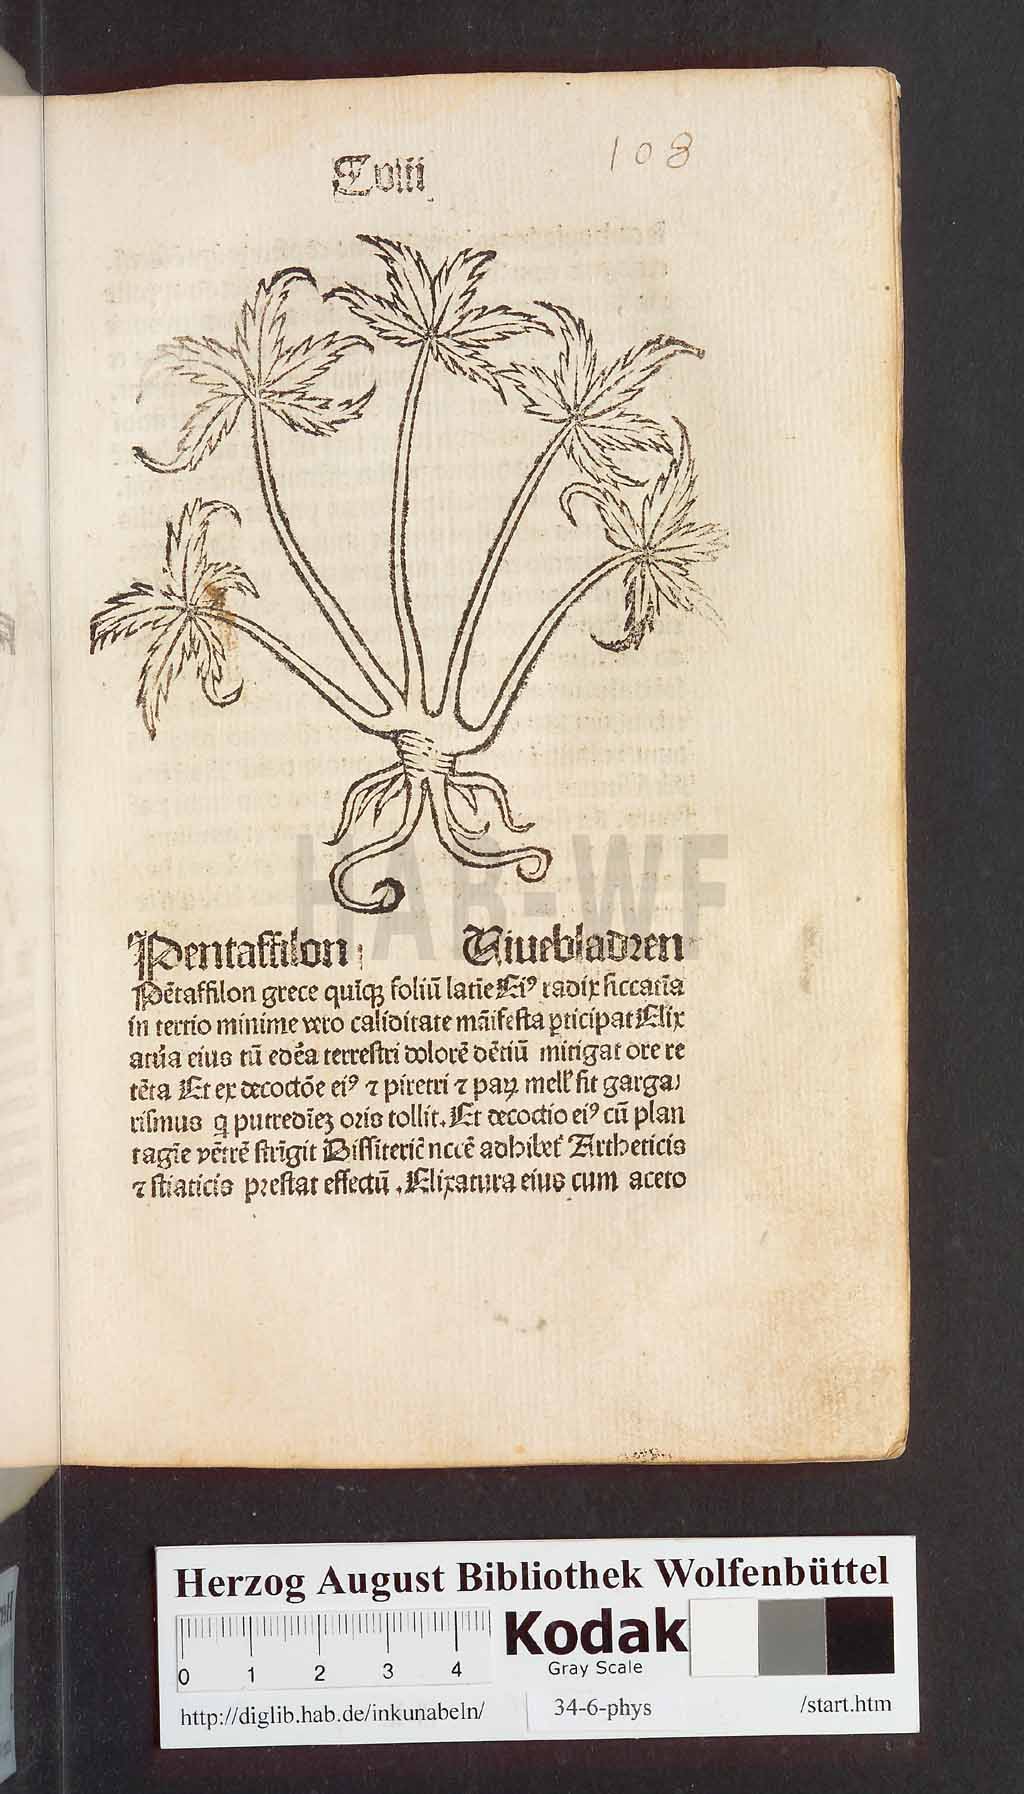 108
Cviii
Pentaffilon Viuebladren
Pētaffilon grece quīqꝫ foliū latīe Eiꝰ radix siccatīa
in tertio minime vero caliditate māifesta ꝑticipat Elix
atur̄a eius tū edēa terrestri dolorē dētiū mitigat ore re
tēta Et ex decoctōe eiꝰ ⁊ piretri ⁊ paꝝ mell̕ fit garga⸗
rismus q̇ putredīeꝫ oris tollit. Et decoctio eiꝰ cū plan
tagīe vētrē strīgit Dissiteric̄ nccē adhibet᷑ Artheticis
⁊ stiaticis prestat effectū . Elixatura eius cum aceto
HAB-WF
Herzog August Bibliothek Wolfenbüttel
0 1 2 3 4
Kodak
Gray Scale
http://diglib.hab.de/inkunabeln/ 34-6-phys /start.htm